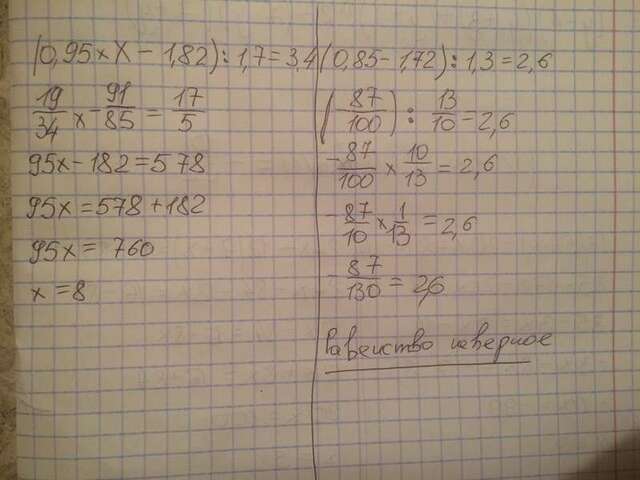 (0,95 × x − 1,82) : 1,7 = 3,4
19/34 x − 91/85 = 17/5
95x − 182 = 578
95x = 578 + 182
95x = 760
x = 8
(0,85 − 1,72) : 1,3 = 2,6
(−87/100) : 13/10 = 2,6
−87/100 × 10/13 = 2,6
−87/10 × 1/13 = 2,6
−87/130 = 2,6
Равенство неверное